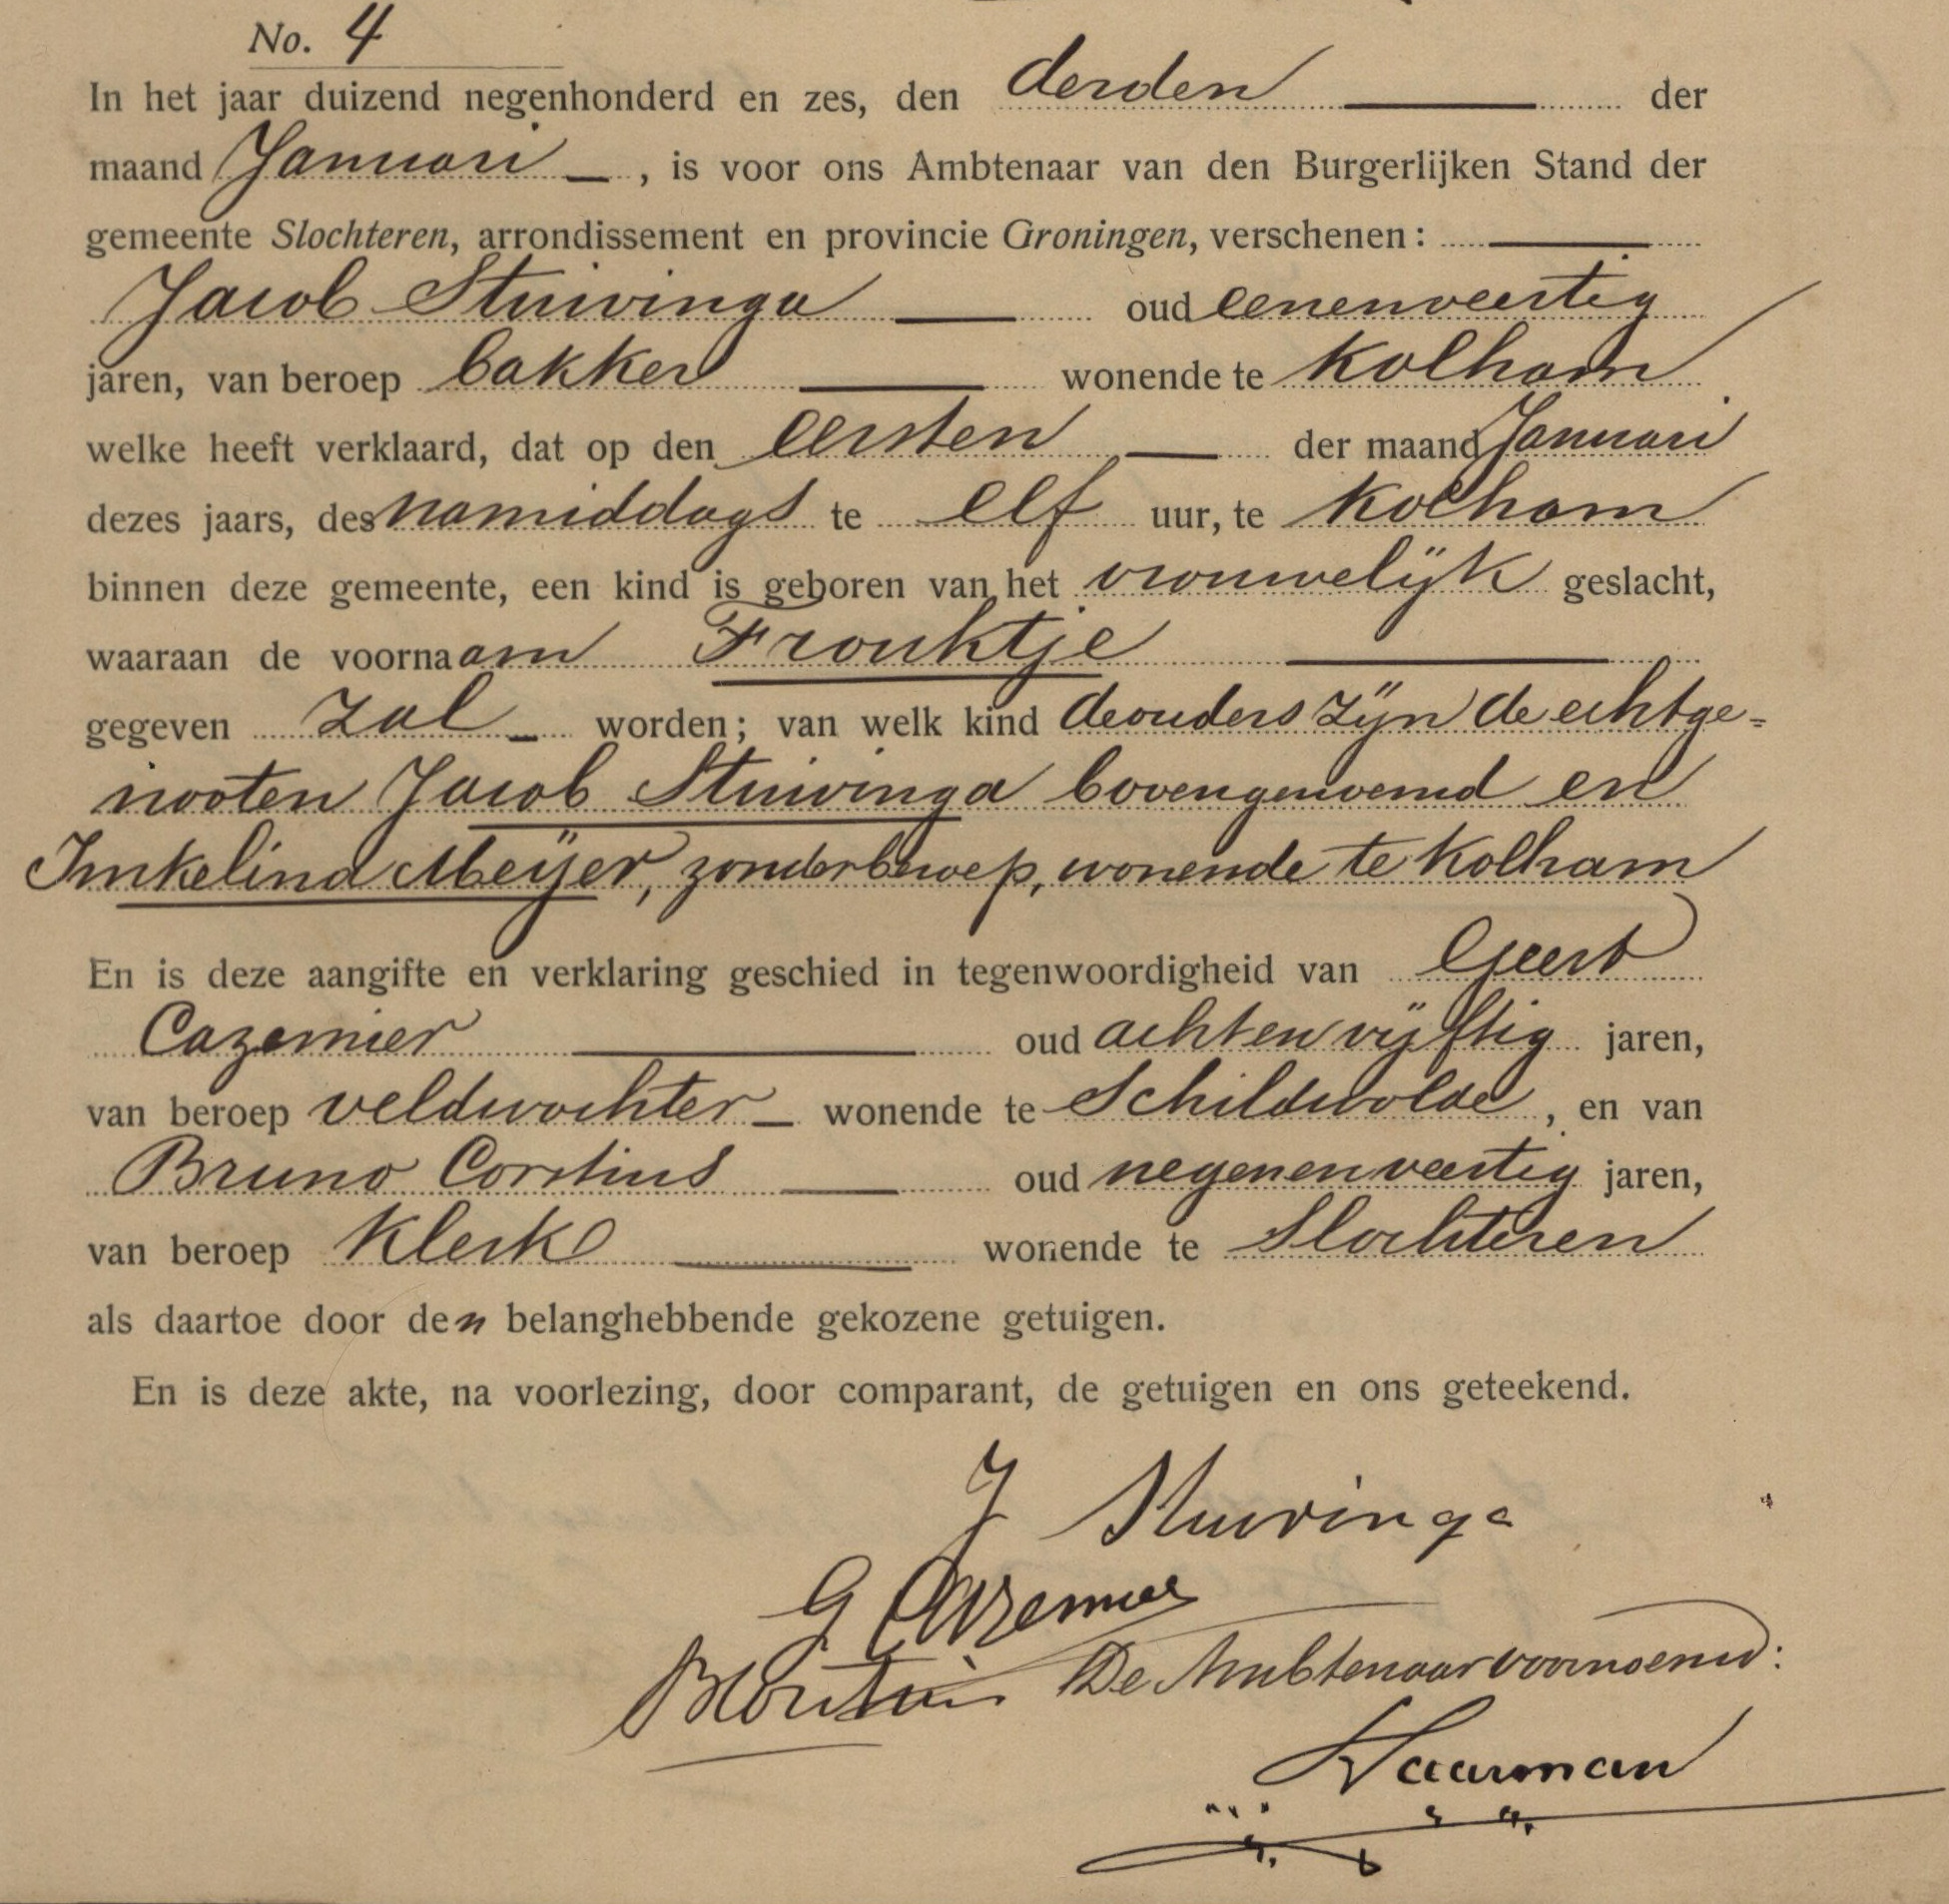 No. 4
In het jaar duizend negenhonderd en zes, den derden der
maand Januari, is voor ons Ambtenaar van den Burgerlijken Stand der
gemeente Slochteren, arrondissement en provincie Groningen, verschenen:
Jacob Stuivinga oud eenenveertig
jaren, van beroep bakker wonende te Kolham
welke heeft verklaard, dat op den eersten der maand Januari
dezes jaars, des namiddags te elf uur, te Kolham
binnen deze gemeente, een kind is geboren van het vrouwelijk geslacht,
waaraan de voornaam Frouktje
gegeven zal worden; van welk kind de ouders zijn de echtge-
nooten Jacob Stuivinga bovengenoemd en
Imkelina Meijer, zonder beroep, wonende te Kolham
En is deze aangifte en verklaring geschied in tegenwoordigheid van Geert
Cazemier oud achtenvijftig jaren,
van beroep veldwachter wonende te Schildwolde, en van
Bruno Corstius oud negenenveertig jaren,
van beroep klerk wonende te Slochteren
als daartoe door den belanghebbende gekozene getuigen.
En is deze akte, na voorlezing, door comparant, de getuigen en ons geteekend.
J Stuivinga
G Cazemier
BCorstius De Ambtenaar voornoemd: